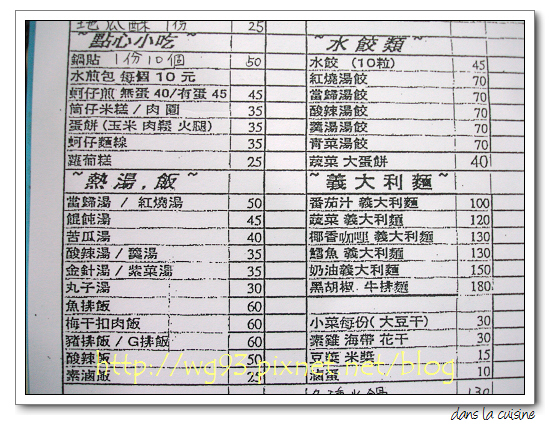 地瓜酥 1份 25
~點心小吃~
鍋貼 1份10個 50
水煎包 每個 10 元
蚵仔煎 無蛋 40/有蛋 45 45
筒仔米糕 / 肉圓 35
蛋餅 (玉米 肉鬆 火腿) 35
蚵仔麵線 35
蘿蔔糕 25
~熱湯.飯~
當歸湯 / 紅燒湯 50
餛飩湯 45
苦瓜湯 40
酸辣湯 / 羹湯 35
金針湯 / 紫菜湯 35
丸子湯 30
魚排飯 60
梅干扣肉飯 60
豬排飯 / G排飯 60
酸辣飯 50
素滷飯 25
~水餃類~
水餃 (10粒) 45
紅燒湯餃 70
當歸湯餃 70
酸辣湯餃 70
羹湯湯餃 70
青菜湯餃 70
蔬菜 大蛋餅 40
~義大利麵~
番茄汁 義大利麵 100
蔬菜 義大利麵 120
椰香咖哩 義大利麵 130
鱈魚 義大利麵 130
奶油義大利麵 150
黑胡椒 牛排麵 180
小菜每份(大豆干) 30
素雞 海帶 花干 30
豆漿 米漿 15
滷蛋 10
火鍋 130
http://wg93.pixnet.net/blog
dans la cuisine